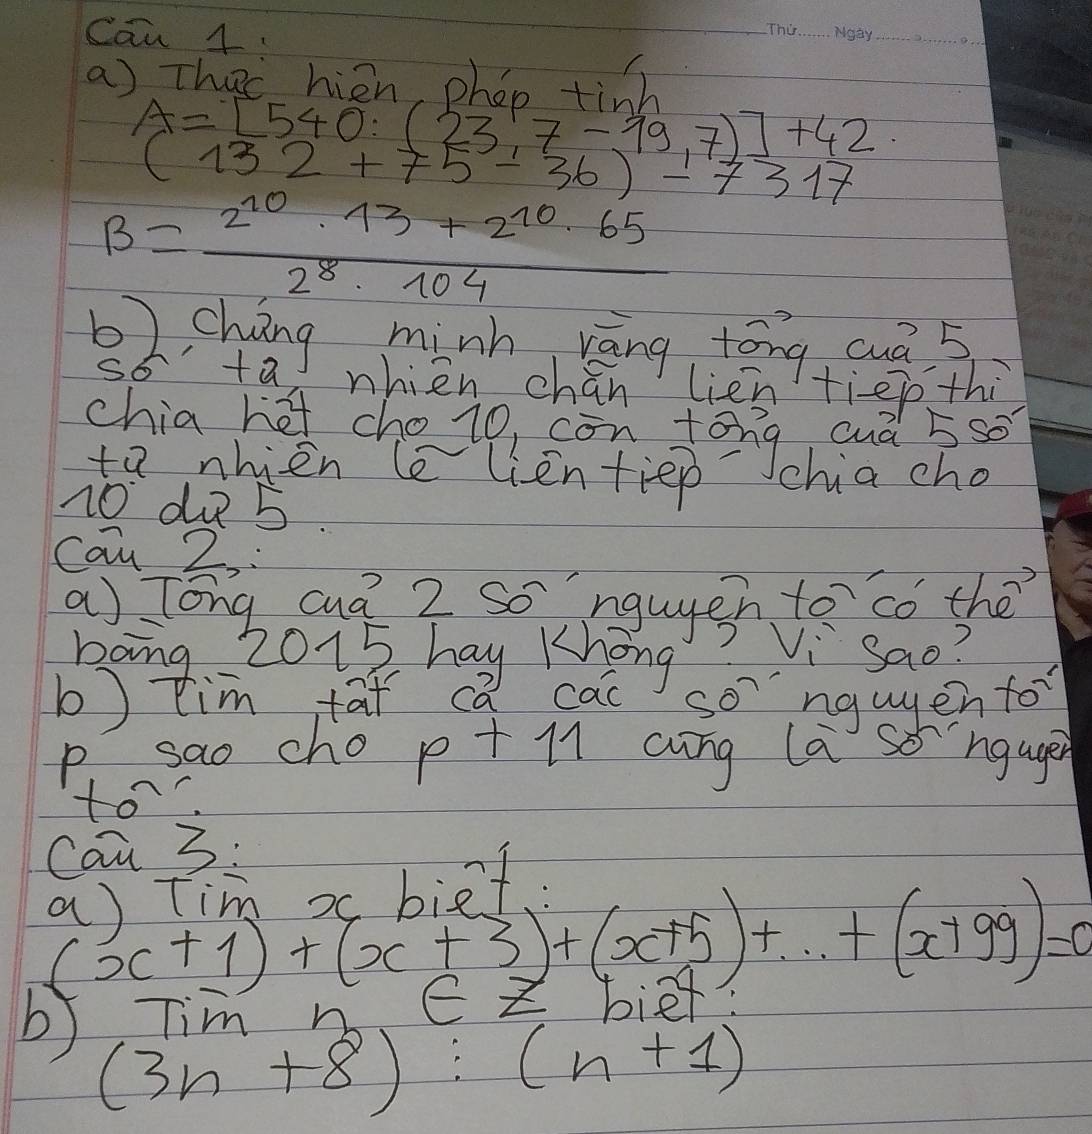 Thứ....... Ngày...............
Câu 1:
a) Thực hiện phép tính
A = [540 : (23,7 - 19,7)] + 42.
(132 + 75 - 36) - 7317
B = 2^10 . 13 + 2^10 . 65
2^8 . 104
b) Chứng minh rằng tổng của 5
số tự nhiên chẵn liên tiếp thì
chia hết cho 10, còn tổng của 5 số
tự nhiên lẻ liên tiếp chia cho
10 dư 5.
Câu 2:
a) Tổng của 2 số nguyên tố có thể
bằng 2015 hay không? Vì sao?
b) Tìm tất cả các số nguyên tố
p sao cho p + 11 cũng là số nguyên
tố.
Câu 3:
a) Tìm x biết:
(x + 1) + (x + 3) + (x + 5) + ... + (x + 99) = 0
b) Tìm n ∈ Z biết:
(3n + 8) ⋮ (n + 1)